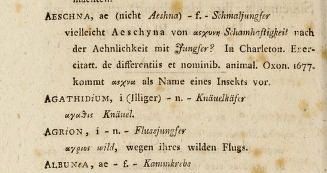 AESCHNA, ae (nicht Aeshna) - f. - Schmaljungfer
vielleicht Aeschyna von αισχυνη Schamhaftigkeit nach
der Aehnlichkeit mit Jungfer? In Charleton. Exer-
citatt. de differentiis et nominib. animal. Oxon. 1677.
kommt αισχνα als Name eines Insekts vor.
AGATHIDIUM, i (Illiger) - n. - Knäuelkäfer
αγαθις Knäuel.
AGRION, i - n. - Flussjungfer
αγριος wild, wegen ihres wilden Flugs.
ALBUNEA, ae - f. - Kammkrebs